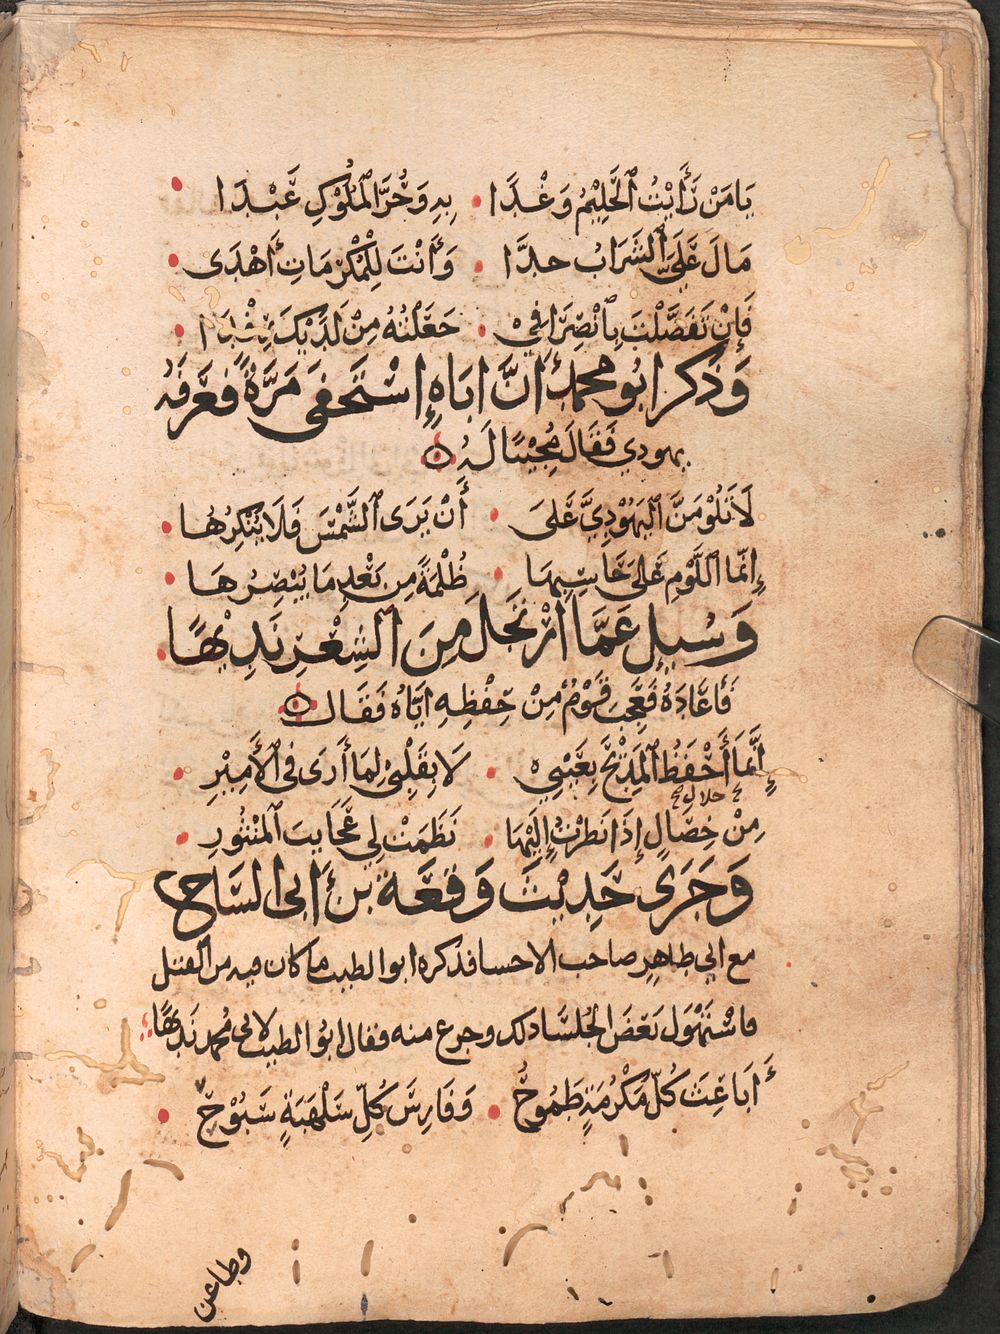 يَا مَنْ رَأَيْتُ الحَلِيْمُ وَغْدَا • بِهِ وَحُرَّ المُلُوْكِ عَبْدَا •
مَالَ عَلَيَّ الشَرَابُ جِدَّا • وَأَنْتَ لِلْمَكْرُمَاتِ أَهْدَى •
فَإِنْ تَفَضَّلْتَ بِانْصِرَافِيْ • جَعَلْتُهُ مِنْ لَدَيْكَ رِفْدَا •
وَذَكَرَ ابُو مُحَمَّد أَنَّ ابَاهُ اسْتَخْفَى مَرَّةً فَعَرَفَهُ
يهودي فَقَالَ مُجِيْبًا لَهُ
لَا تَلُوْمَنَّ اليَهُوْدِيَّ عَلَى • أَنْ يَرَى الشَّمْسَ فَلَا يُنْكِرُهَا •
إِنَّمَا اللَّوْمِ عَلَى حَاسِبِهَا • ظُلْمَةً مِن بَعْدِ مَا يُبْصِرُهَا •
وَسُئِلَ عَمَّا ارْتَجَلَ مِنَ الشِعْرِ بَدِيْهًا •
فَأَعَادَهُ فَعَجِبَ قَوْمٌ مِنْ حِفْظِهِ ايَّاهُ فَقَالَ
إِنَّمَا أَحْفَظُ المَدِيْحَ بِعَيْنِيْ • لَا بِقَلْبِيْ لِمَا أَرَى فِي الأَمِيْرِ •
خلال
مِنْ خِصَالٍ إِذَا نَظَرْتُ إِلَيْهَا • نَظَمَتْ لِي عَجَايِبَ المَنْثُورِ •
وَجَرَى حَدِيْثُ وَقْعَةِ بن أبي السَاج
مع ابي طاهر صاحب الاحسا فذكره ابو الطيب ما كان فيه من القتل
فاسْتَهْوَلَ بَعْضُ الجُلسَا ذلك وجزع منه فقال ابُو الطيب لابي مُحمد بَدِيْهًا
أَبَاعِثَ كُلِّ مَكْرُمَةٍ طَمُوحٍ • وَفَارِسَ كُلِّ سَلْهَبَةٍ سَبُوْحٍ •
وطاعن